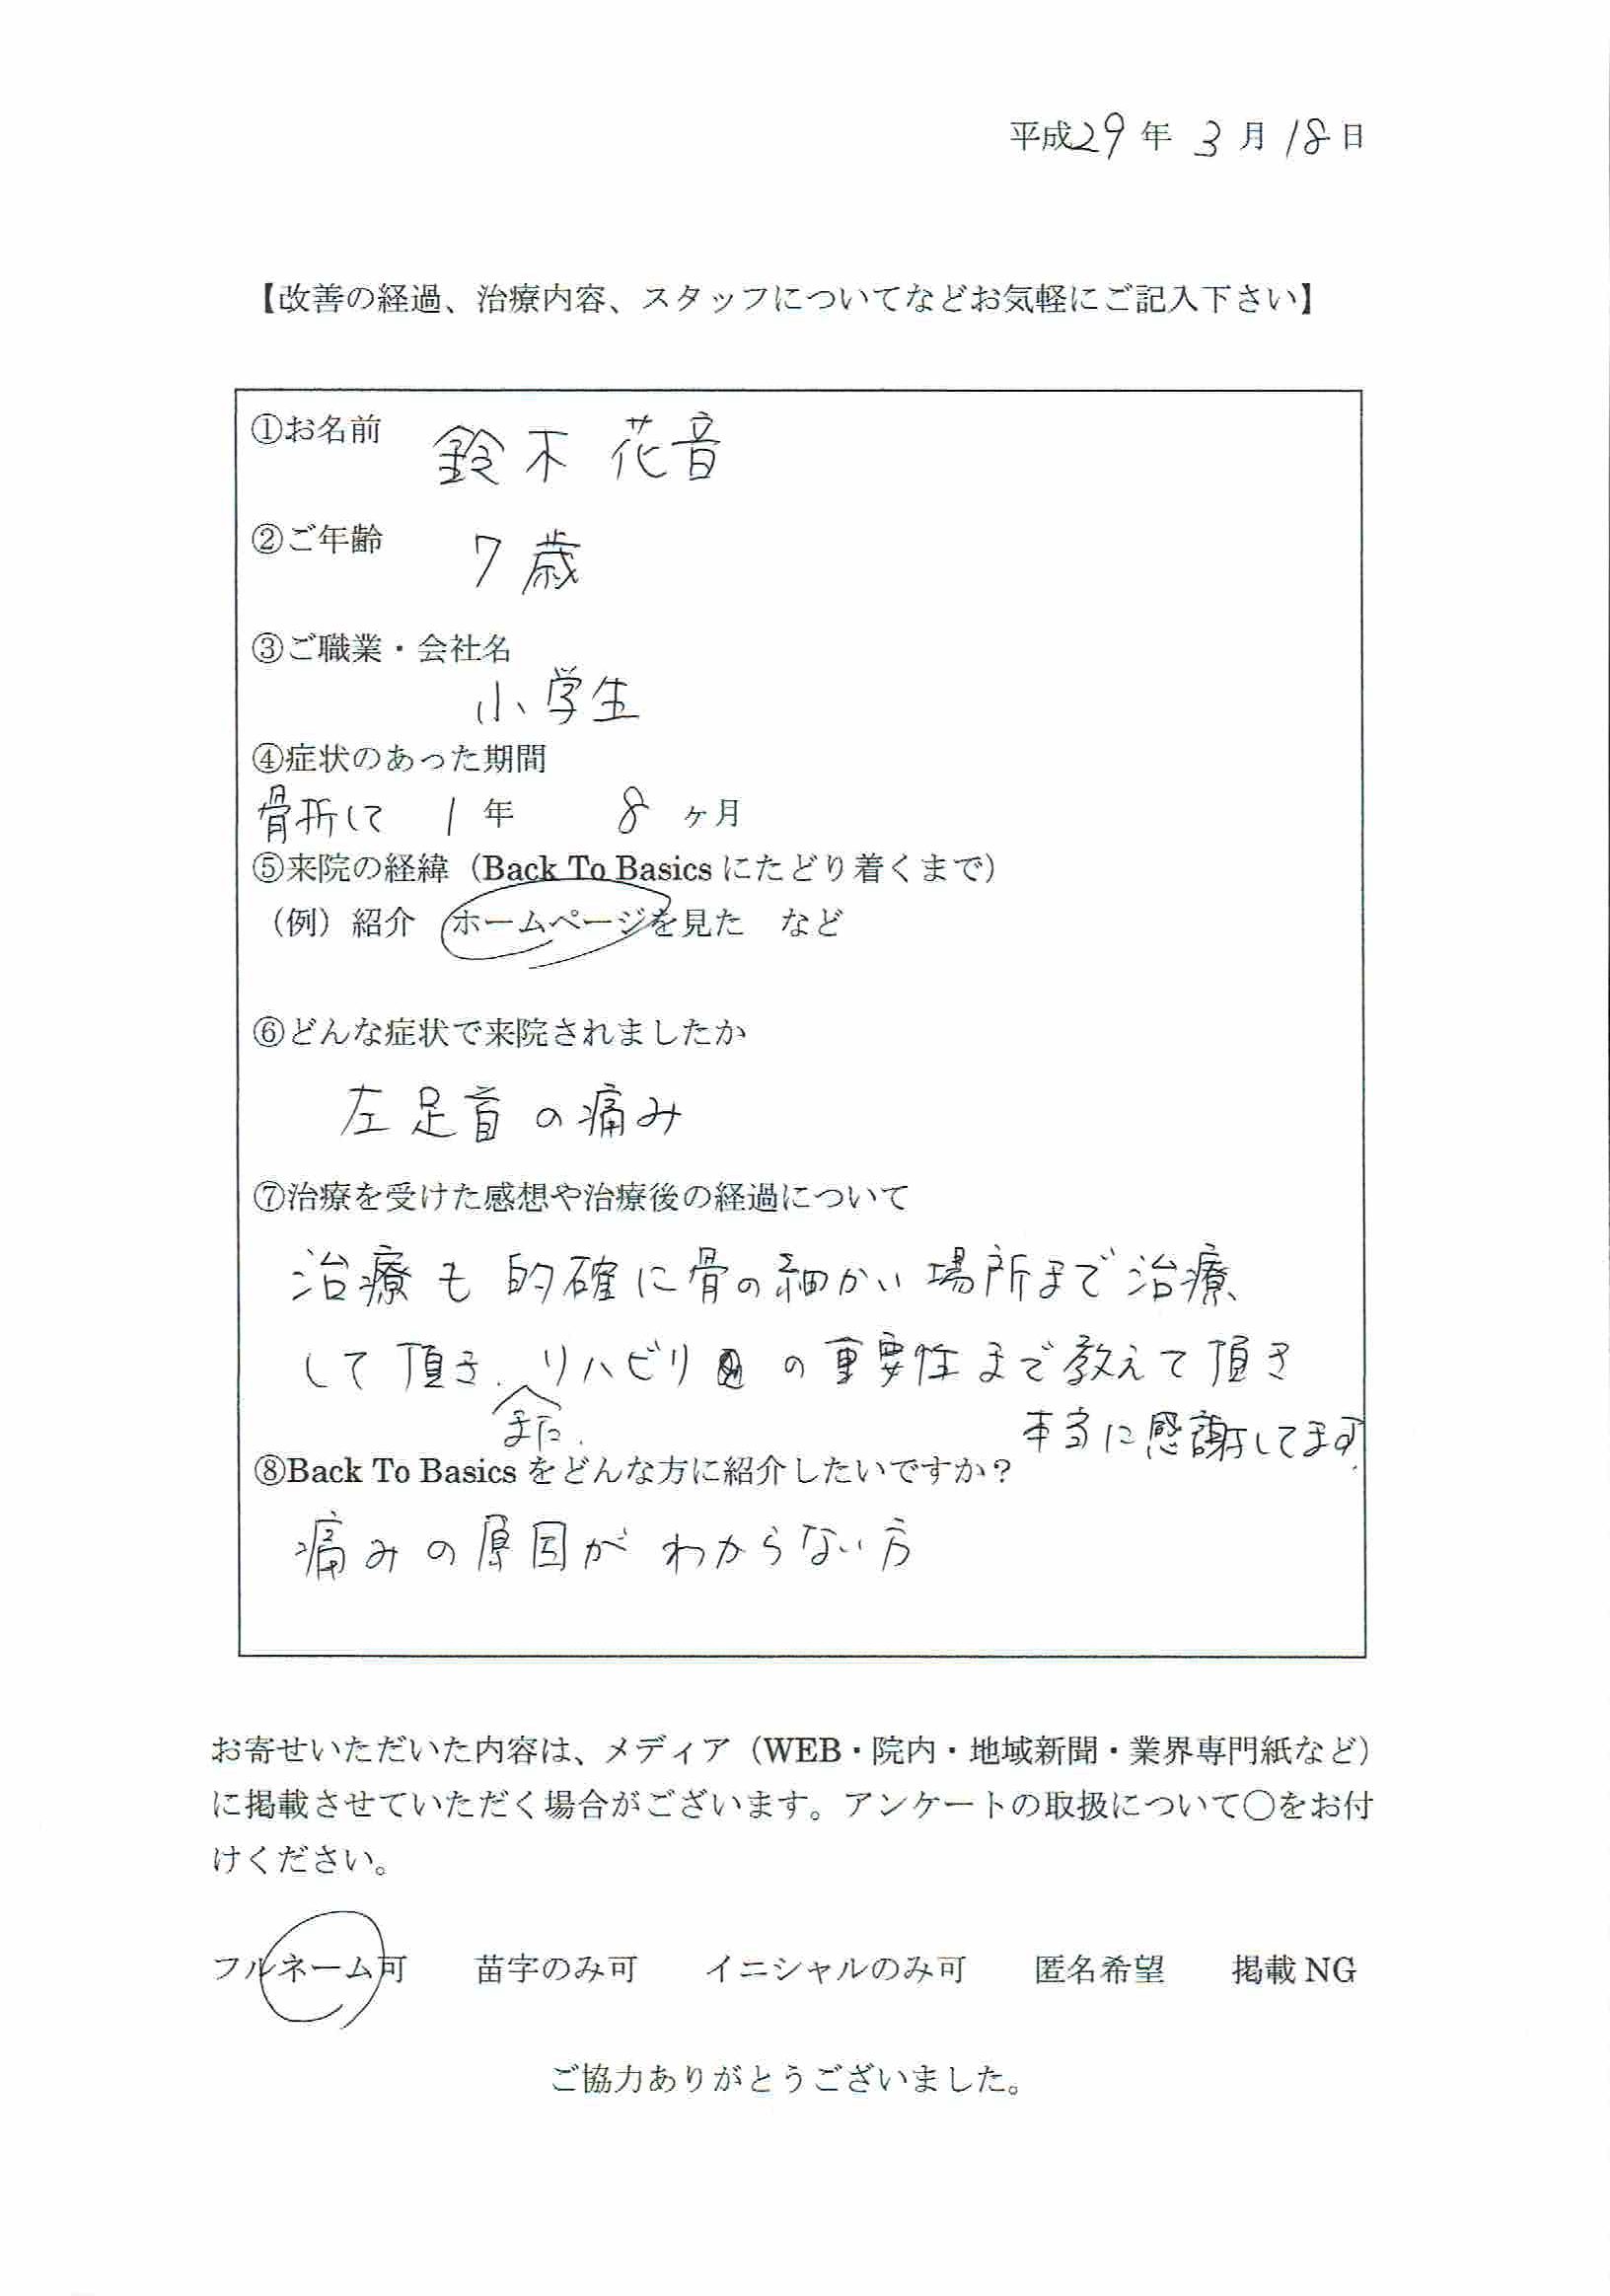 平成29年 3月18日
【改善の経過、治療内容、スタッフについてなどお気軽にご記入下さい】
①お名前 鈴木 花音
②ご年齢 7歳
③ご職業・会社名
小学生
④症状のあった期間
骨折して 1年 8ヶ月
⑤来院の経緯（Back To Basics にたどり着くまで）
（例）紹介 ホームページを見た など
⑥どんな症状で来院されましたか
左足首の痛み
⑦治療を受けた感想や治療後の経過について
治療も的確に骨の細かい場所まで治療
して頂き、リハビリの重要性まで教えて頂き
また、 本当に感謝してます。
⑧Back To Basics をどんな方に紹介したいですか？
痛みの原因がわからない方
お寄せいただいた内容は、メディア（WEB・院内・地域新聞・業界専門紙など）
に掲載させていただく場合がございます。アンケートの取扱について○をお付
けください。
フルネーム可 苗字のみ可 イニシャルのみ可 匿名希望 掲載 NG
ご協力ありがとうございました。